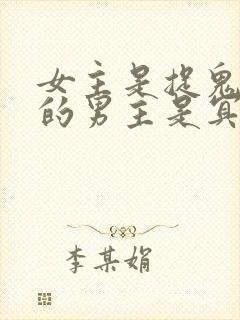 女主是捉鬼
的男主是冥
李某娟